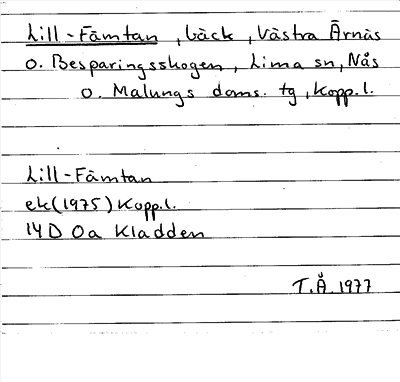 Lill-Fämtan, bäck, Västra Ärnäs
o. Besparingsskogen, Lima sn, Nås
o. Malungs doms. tg, Kopp.l.
Lill-Fämtan
ek(1975) Kopp.l.
14D 0a Kladden
T.Å. 1977